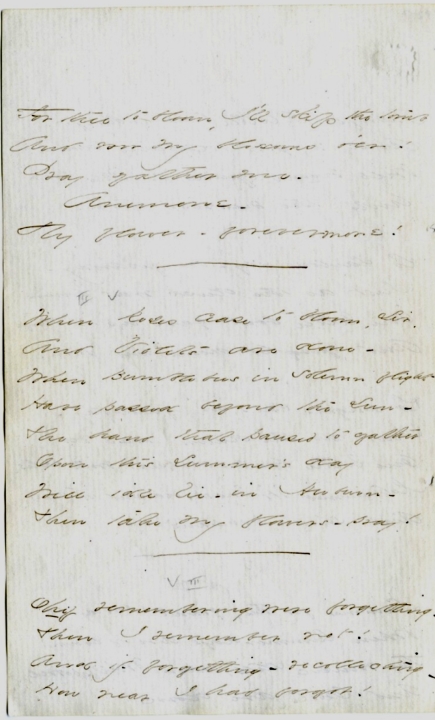 For thee to bloom, I'll skip the tomb
And row my blossoms o'er!
Pray gather me -
Anemone -
Thy flower - forevermore!
III V
When Roses cease to bloom, Sir,
And Violets are done -
When Bumblebees in solemn flight
Have passed beyond the Sun -
The hand that paused to gather
Upon this Summer's day
Will idle lie - in Auburn -
Then take my flowers - pray!
V III
Oh if remembering were forgetting -
Then I remember not!
And if forgetting - recollecting -
How near I had forgot!